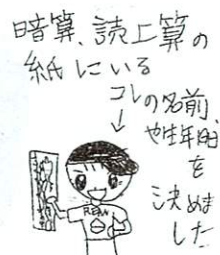 暗算、読上算の
紙にいる
コレの名前、
や生年月日
を
決めま
した